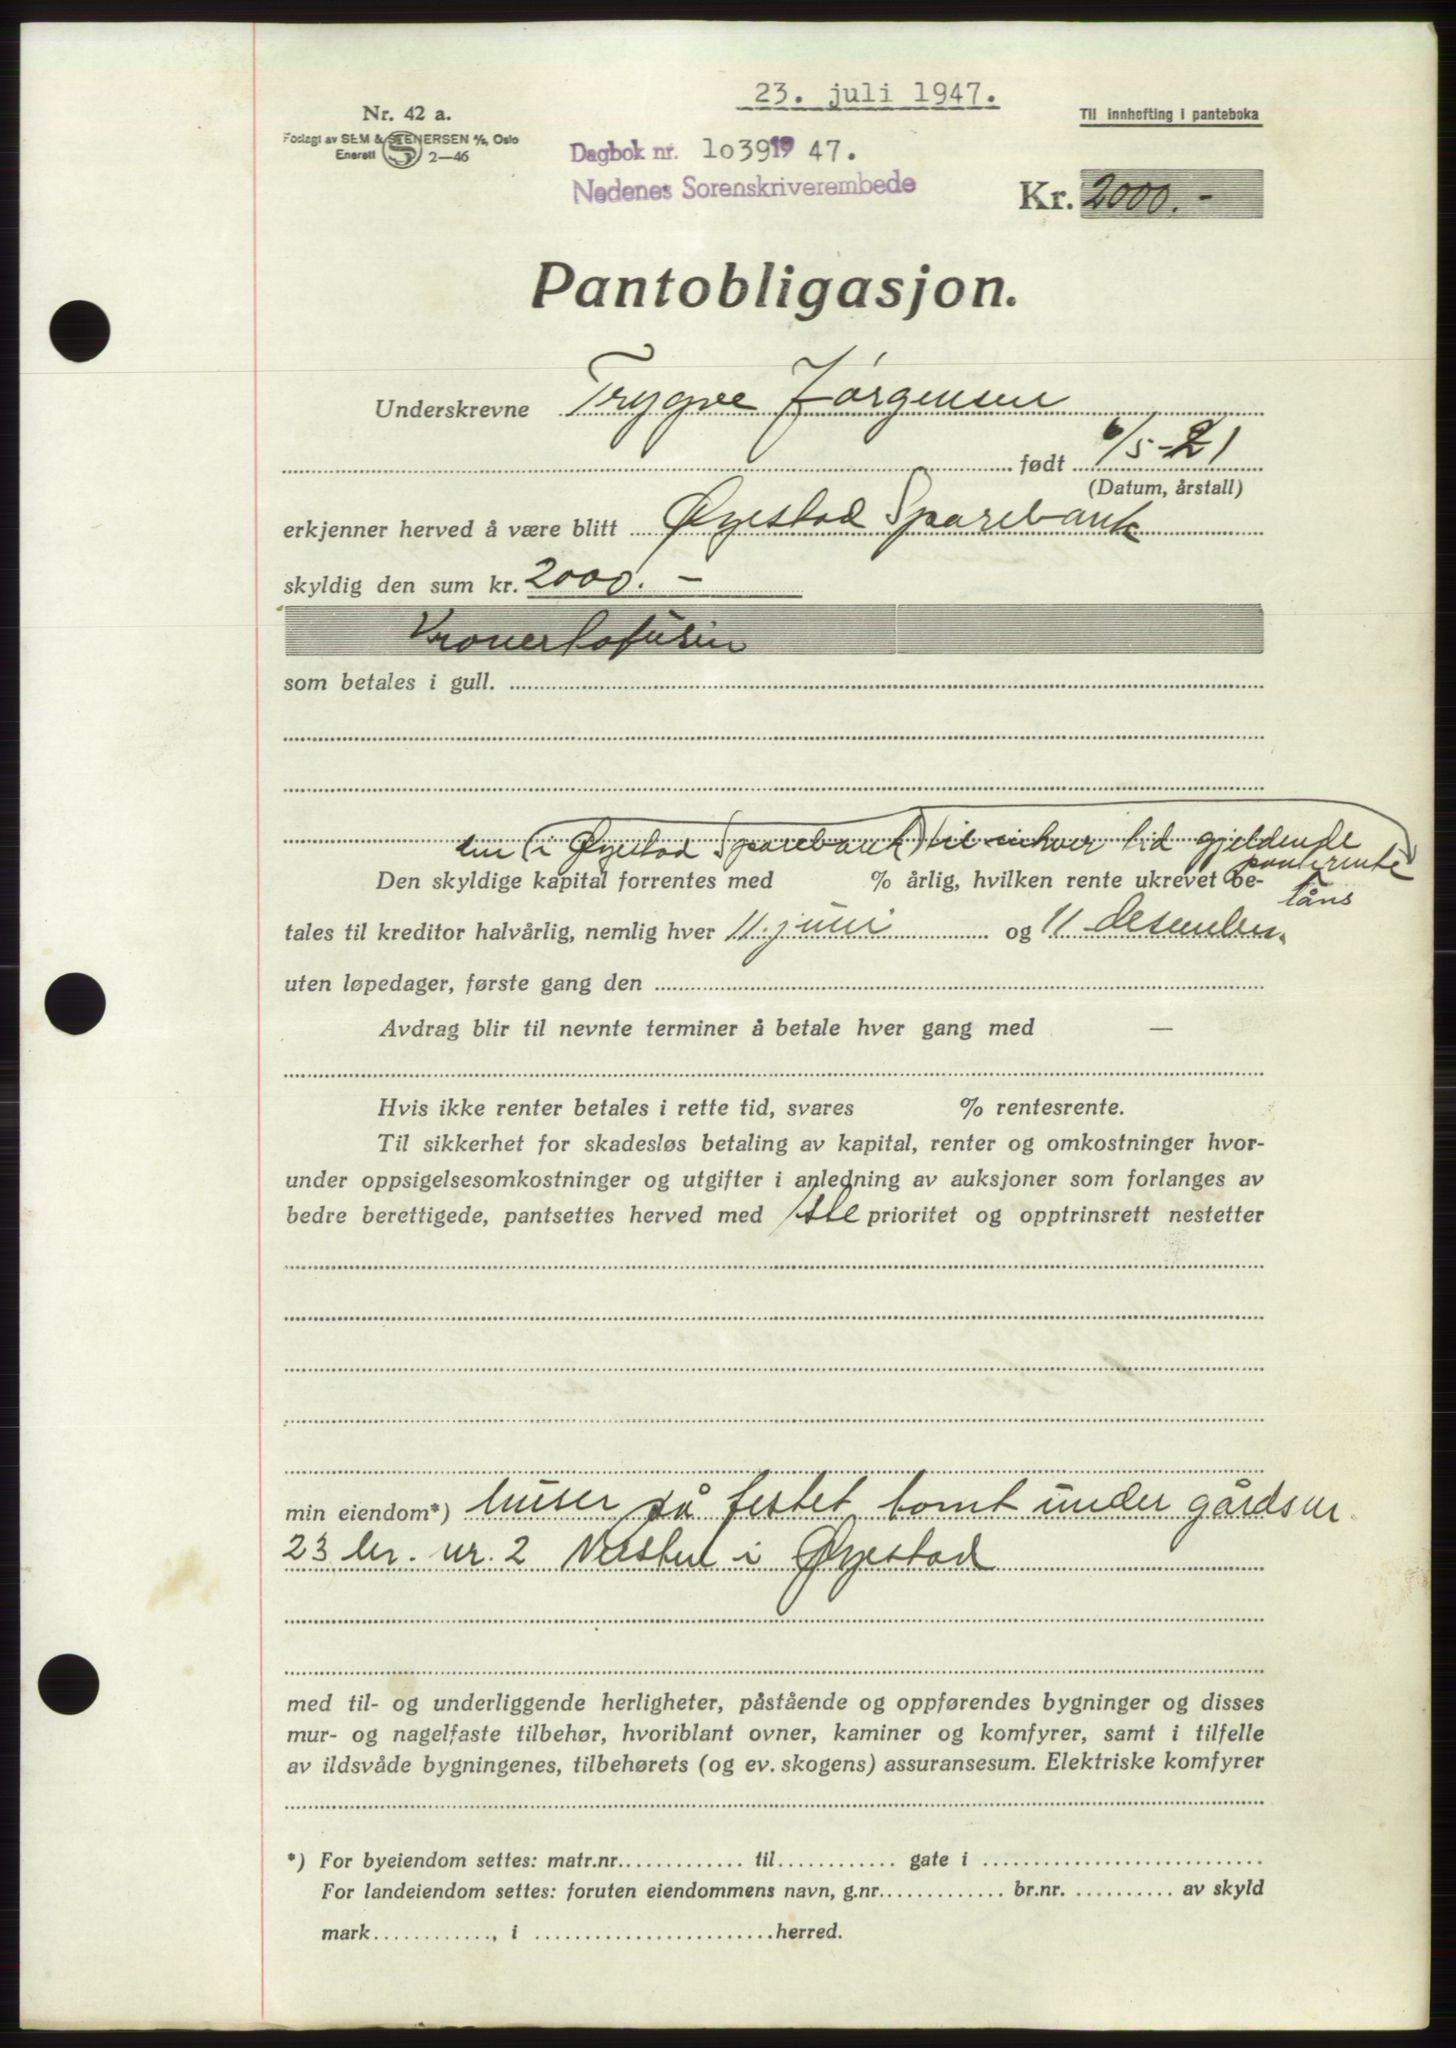 23. juli 1947.
Nr. 42 a.
Til innhefting i panteboka
Forlagt av SEM & STENERSEN A/S, Oslo
Enerett S 2—46
Dagbok nr. 1o39 19 47.
Nedenes Sorenskriverembede
Kr. 2000.-
Pantobligasjon.
Underskrevne Trygve Jørgensen
født 6/5-21
(Datum, årstall)
erkjenner herved å være blitt Øyestad Sparebank
skyldig den sum kr. 2000. -
Kronertotusen
som betales i gull.
den (i Øyestad Sparebank) til enhver tid gjeldende
panterente
Den skyldige kapital forrentes med % årlig, hvilken rente ukrevet be-
låns
tales til kreditor halvårlig, nemlig hver 11. juni og 11 desember.
uten løpedager, første gang den
Avdrag blir til nevnte terminer å betale hver gang med —
Hvis ikke renter betales i rette tid, svares % rentesrente.
Til sikkerhet for skadesløs betaling av kapital, renter og omkostninger hvor-
under oppsigelsesomkostninger og utgifter i anledning av auksjoner som forlanges av
bedre berettigede, pantsettes herved med 1ste prioritet og opptrinsrett nestetter
min eiendom*) huser på festet tomt under gårdsnr.
23 br. nr. 2 i Øyestad
med til- og underliggende herligheter, påstående og oppførendes bygninger og disses
mur- og nagelfaste tilbehør, hvoriblant ovner, kaminer og komfyrer, samt i tilfelle
av ildsvåde bygningenes, tilbehørets (og ev. skogens) assuransesum. Elektriske komfyrer
*) For byeiendom settes: matr.nr. til gate i
For landeiendom settes: foruten eiendommens navn, g.nr. br.nr. av skyld
mark , i herred.